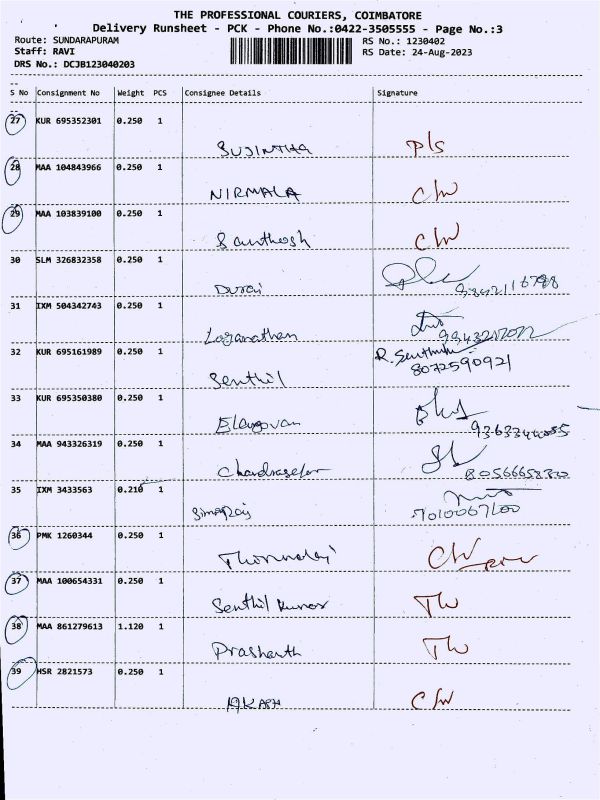 THE PROFESSIONAL COURIERS, COIMBATORE
Delivery Runsheet - PCK - Phone No.:0422-3505555 - Page No.:3
Route: SUNDARAPURAM RS No.: 1230402
Staff: RAVI RS Date: 24-Aug-2023
DRS No.: DCJB123040203
S No Consignment No Weight PCS Consignee Details Signature
27 KUR 695352301 0.250 1
SUJINTHA P/S
28 MAA 104843966 0.250 1
NIRMALA C/W
29 MAA 103839100 0.250 1
Santhosh C/W
30 SLM 326832358 0.250 1
Durai
31 IXM 504342743 0.250 1
Loganathan
32 KUR 695161989 0.250 1
R. Senthil
Senthil 8072590921
33 KUR 695350380 0.250 1
Elangovan
34 MAA 943326319 0.250 1
Chandrasekar
35 IXM 3433563 0.210 1
36 PMK 1260344 0.250 1
C/W
37 MAA 100654331 0.250 1
Senthil Kumar
38 MAA 861279613 1.120 1
Prashanth
39 HSR 2821573 0.250 1
AKASH C/W